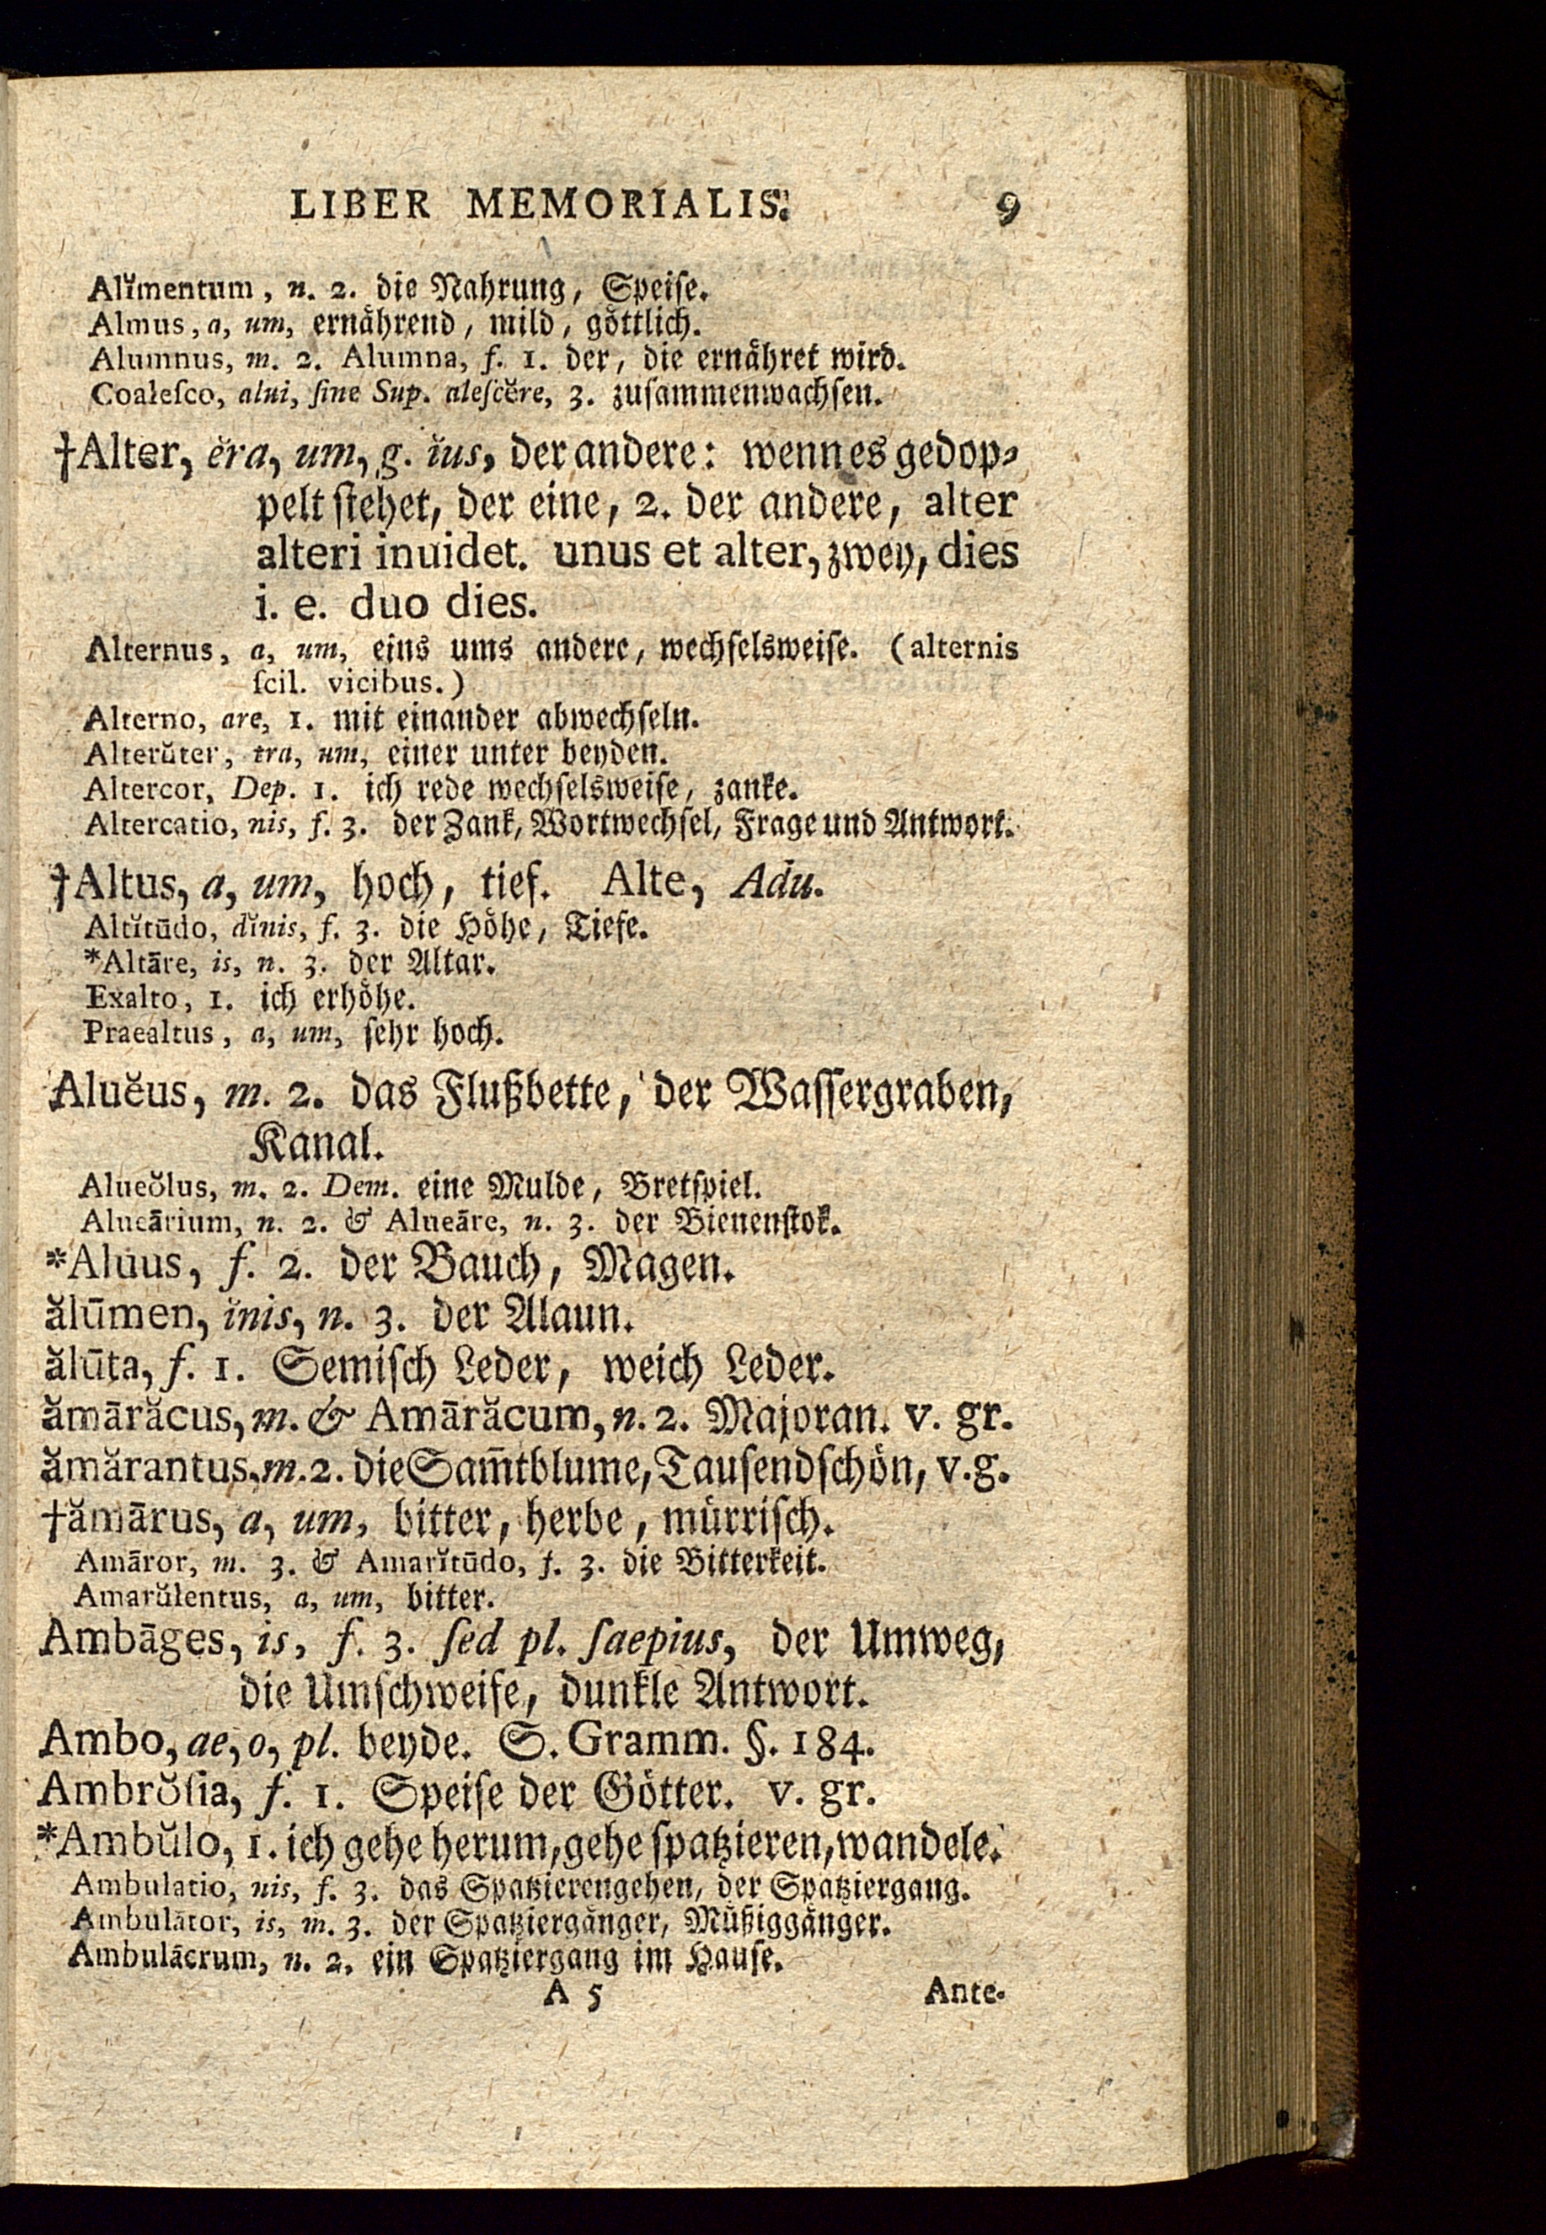 LIBER MEMORIALIS. 9
Alĭmentum, n. 2. die Nahrung, Speiſe.
Almus, a, um, ernährend, mild, göttlich.
Alumnus, m. 2. Alumna, f. 1. der, die ernähret wird.
Coaleſco, alui, ſine Sup. aleſcĕre, 3. zuſammenwachſen.
†Alter, ĕra, um, g. ĭus, der andere: wenn es gedop⸗
pelt ſtehet, der eine, 2. der andere, alter
alteri inuidet. unus et alter, zwey, dies
i. e. duo dies.
Alternus, a, um, eins ums andere, wechſelsweiſe. (alternis
ſcil. vicibus.)
Alterno, are, 1. mit einander abwechſeln.
Alterŭter, tra, um, einer unter beyden.
Altercor, Dep. 1. ich rede wechſelsweiſe, zanke.
Altercatio, nis, f. 3. der Zank, Wortwechſel, Frage und Antwort.
†Altus, a, um, hoch, tief. Alte, Adu.
Altĭtūdo, dĭnis, f. 3. die Höhe, Tiefe.
*Altāre, is, n. 3. der Altar.
Exalto, 1. ich erhöhe.
Praealtus, a, um, ſehr hoch.
Aluĕus, m. 2. das Flußbette, der Waſſergraben,
Kanal.
Alueŏlus, m. 2. Dem. eine Mulde, Bretſpiel.
Alueārium, n. 2. & Alueāre, n. 3. der Bienenſtok.
*Aluus, f. 2. der Bauch, Magen.
ălūmen, ĭnis, n. 3. der Alaun.
ălūta, f. 1. Semiſch Leder, weich Leder.
ămārăcus, m. & Amārăcum, n. 2. Majoran. v. gr.
ămărantus, m. 2. die Sam̄tblume, Tauſendſchön, v. g.
†ămārus, a, um, bitter, herbe, mürriſch.
Amāror, m. 3. & Amarĭtūdo, f. 3. die Bitterkeit.
Amarŭlentus, a, um, bitter.
Ambāges, is, f. 3. ſed pl. ſaepius, der Umweg,
die Umſchweife, dunkle Antwort.
Ambo, ae, o, pl. beyde. S. Gramm. §. 184.
Ambrŏſia, f. 1. Speiſe der Götter. v. gr.
*Ambŭlo, 1. ich gehe herum, gehe ſpatzieren, wandele.
Ambulatio, nis, f. 3. das Spatzierengehen, der Spatziergang.
Ambulātor, is, m. 3. der Spatziergänger, Müßiggänger.
Ambulācrum, n. 2. ein Spatziergang im Hauſe.
A 5 Ante-